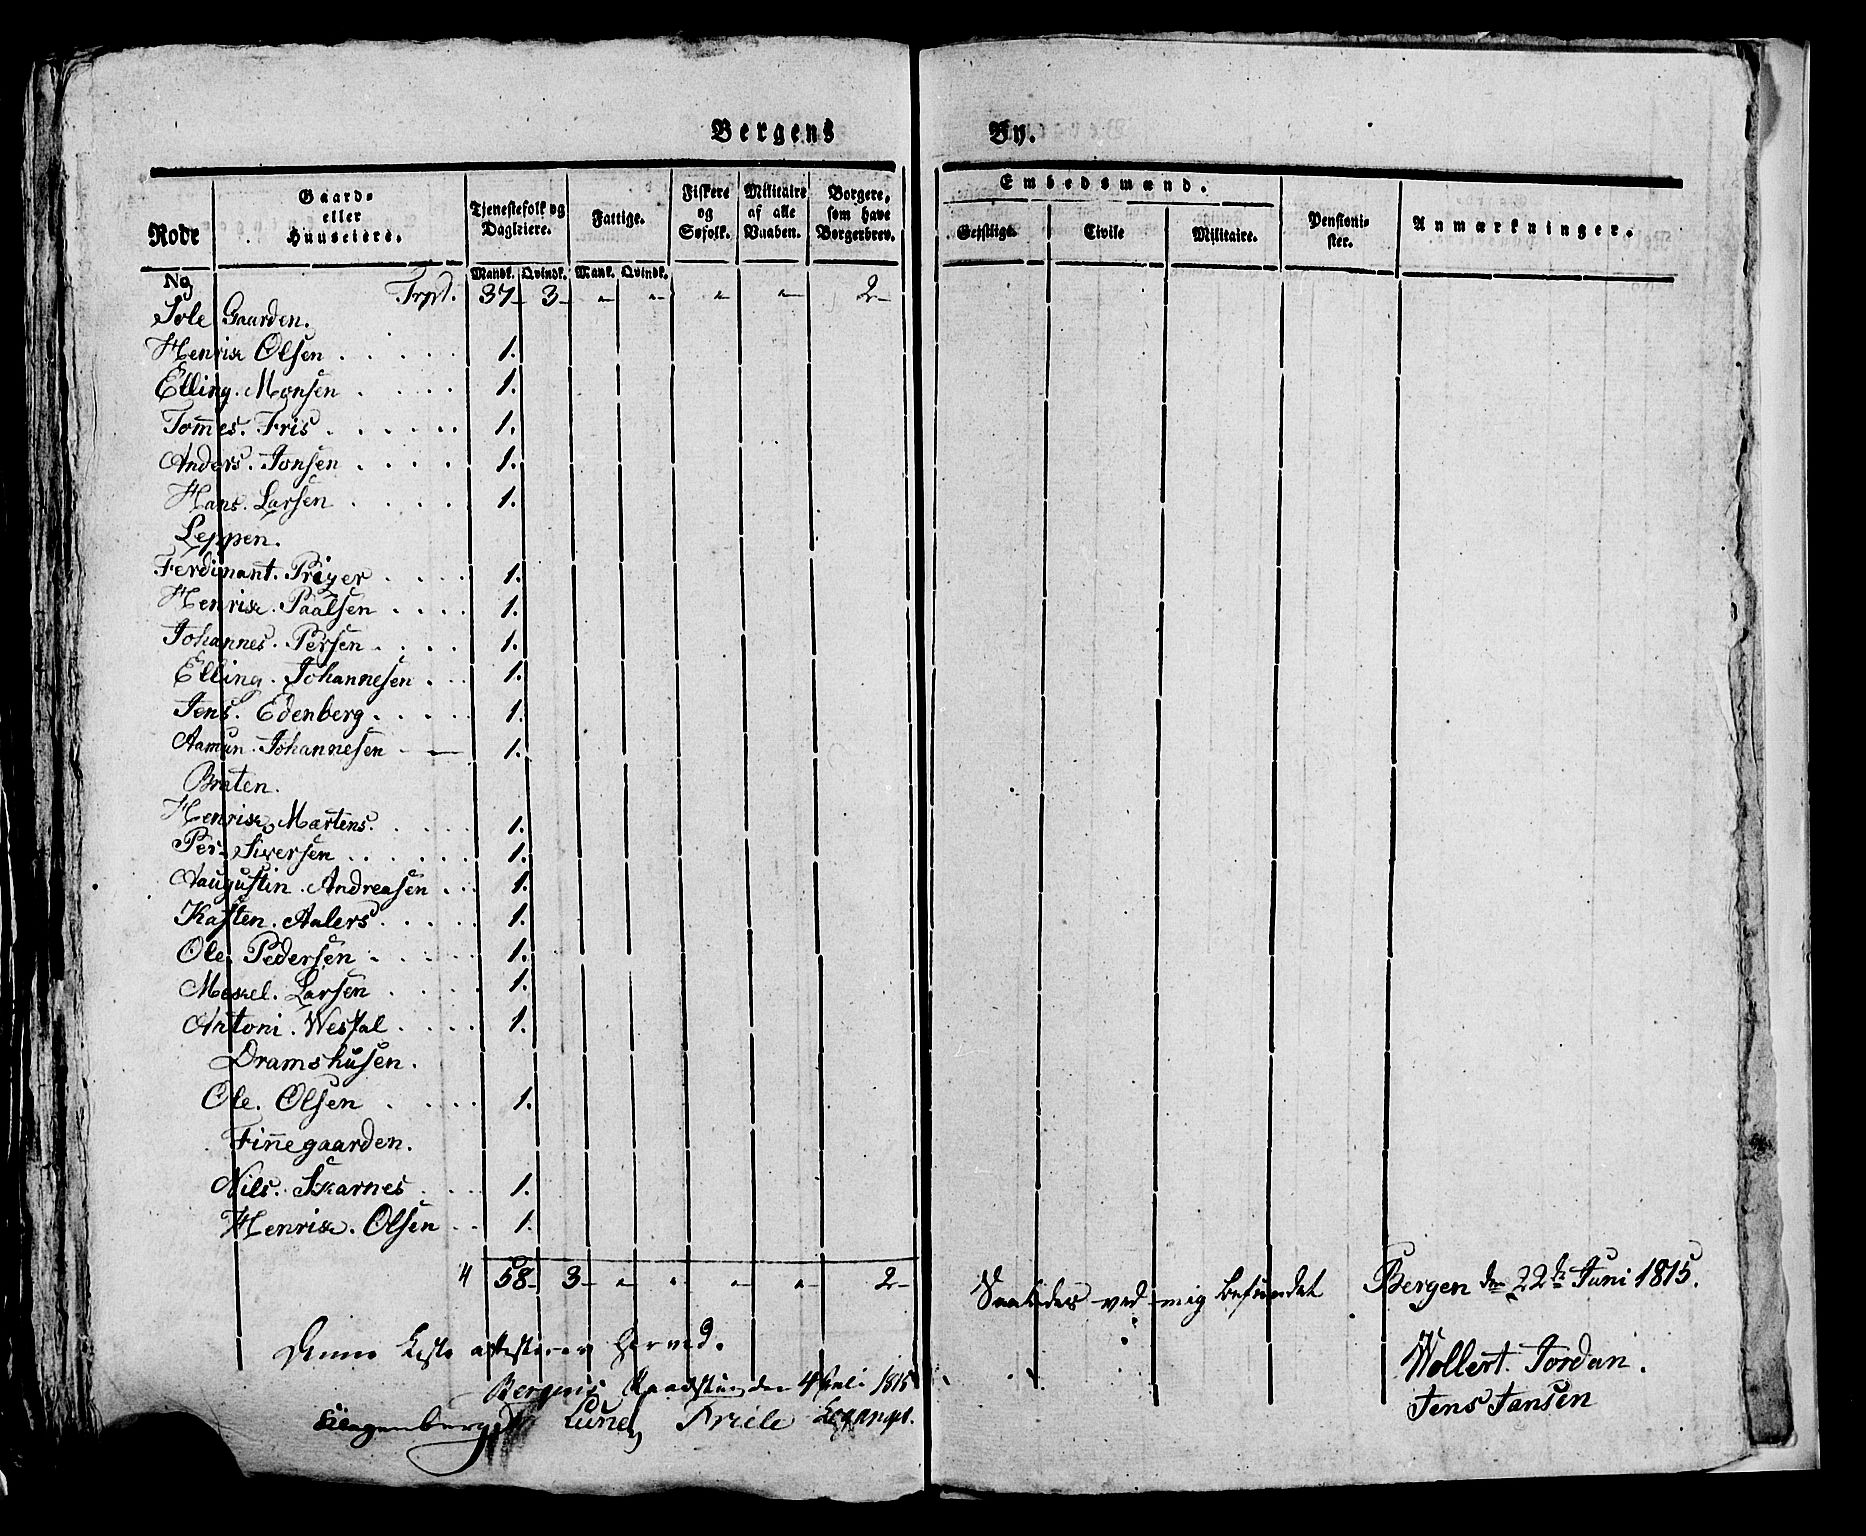 Bergens By.
Rode
Gaard-
eller
Huuseiere.
Tjenestefolk og
Dagleiere.
Fattige.
Fiskere
og
Søfolk.
Militaire
af alle
Vaaben.
Borgere,
som have
Borgerbrev.
Embedsmænd.
Geistlige.
Civile
Militaire.
Pensioni-
ster.
Anmærkninger.
Mandk. Qvindk. Mank. Qvindk.
No Trpt. 37 3 " " " " 2
Sole Gaarden.
Henrik Olsen . . . . . 1.
Elling. Monsen . . . . 1.
Tom̅es. Fris . . . . . . 1.
Anders. Jonsen . . . . 1.
Hans. Larsen . . . . 1.
Leppen.
Ferdinant. Prejer . . . . 1.
Henrik. Paalsen . . . . 1.
Johannes. Persen . . . . 1.
Elling. Johannesen . . . 1.
Jens. Edenberg . . . . . 1.
Aamun. Johannesen - — 1.
Braten.
Henrik Martens. . . . . 1.
Per. Siversen . . . . . . 1.
Aaugustin. Andreasen . . . 1.
Kasten. Aalers . . . . . 1.
Ole. Pedersen . . . . . 1.
Mekel. Larsen . . . . 1.
Antoni. Westal . . . . 1.
Dramshusen.
Ole. Olsen . . . . . 1.
Fin̅egaarden.
Nils. Skarnes . . . . 1.
Henrik. Olsen . . 1.
4 58 3 " " " " 2
Denne Liste attesteres herved.
Bergens Raadstue den 4 Juli 1815
Friele
Saaledes ved mig befundet
Bergen den 22de Juni 1815.
Wollert. Jordan.
Jens Jansen